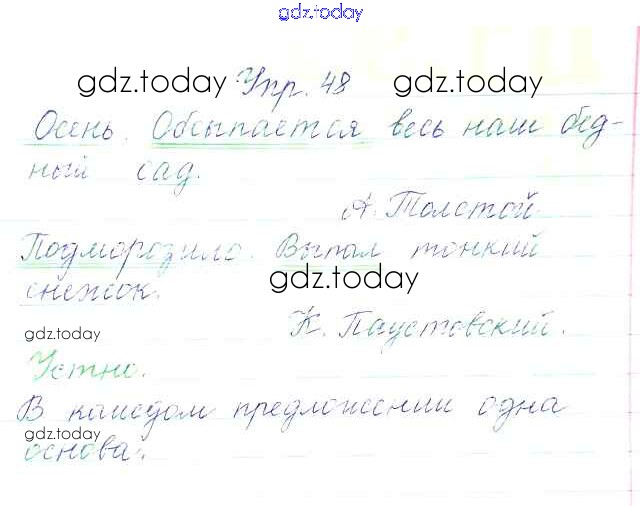 gdz.today
gdz.today Упр. 48 gdz.today
Осень. Обсыпается весь наш бед-
ный сад.
А. Толстой.
Подморозило. Выпал тонкий
снежок.
gdz.today
К. Паустовский.
gdz.today
Устно.
В каждом предложении одна
gdz.today
основа.